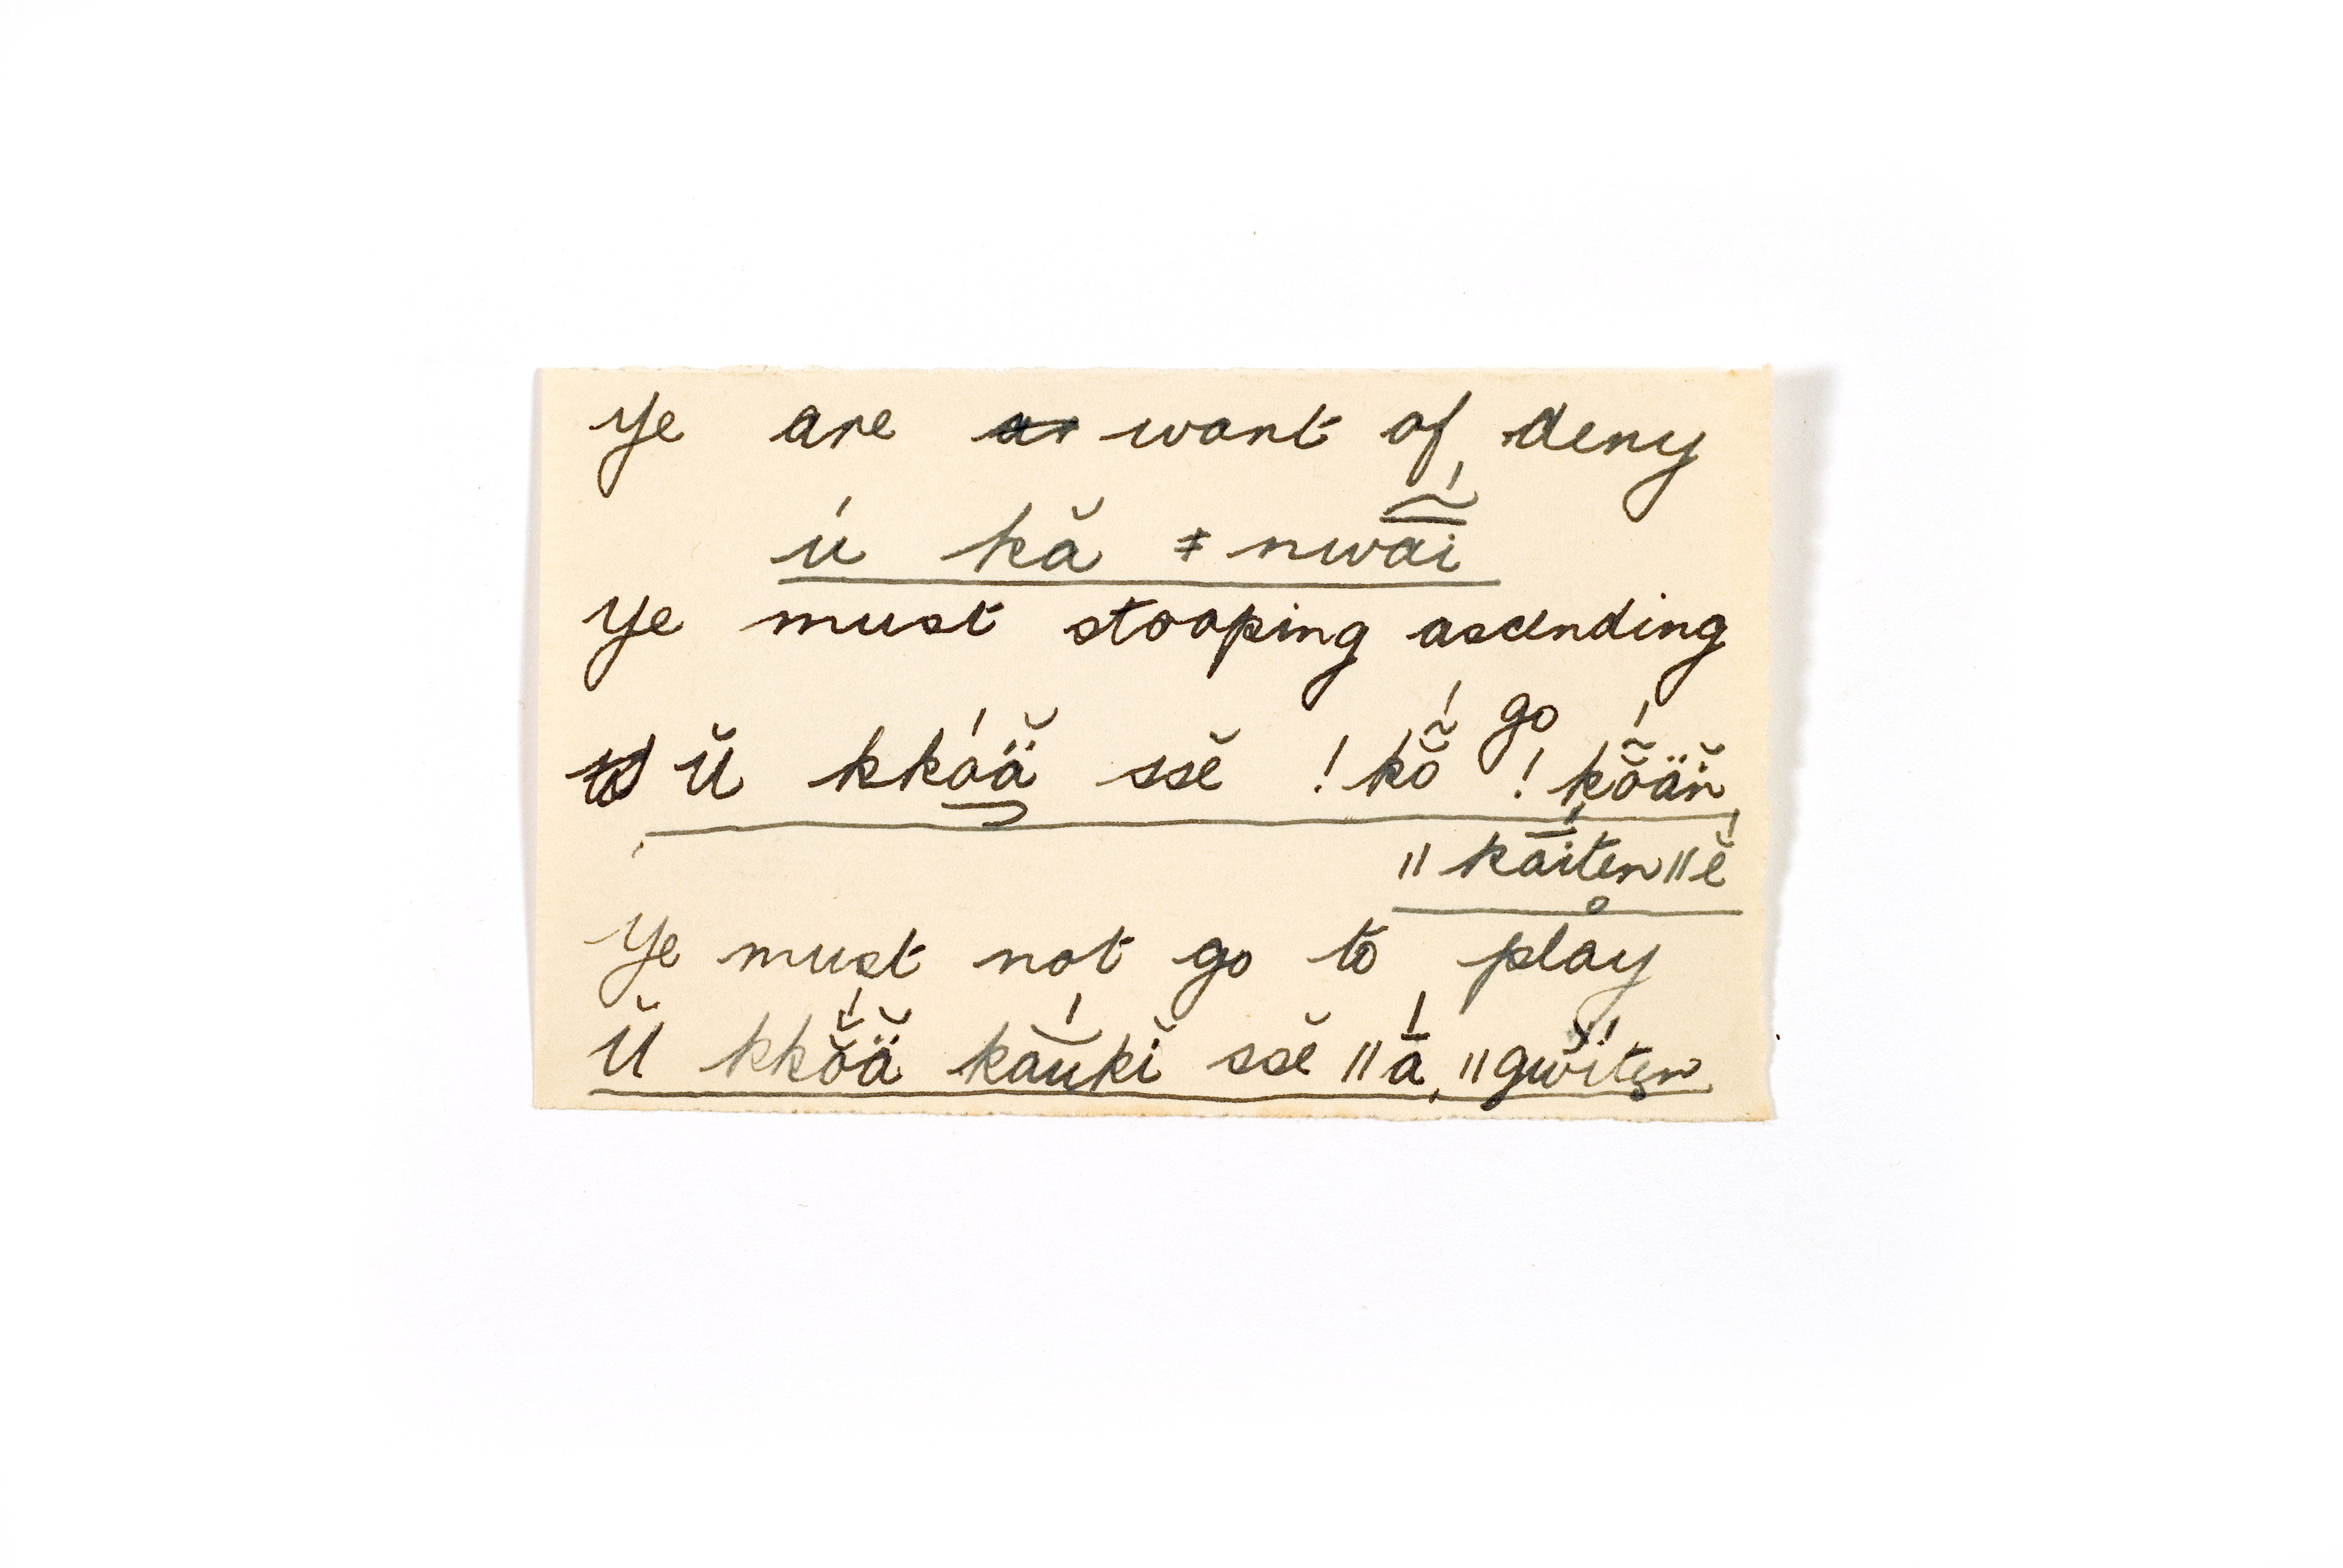 Ye are want of deny
ú kă ǂnwa͠i
Ye must stooping ascending
go
Ŭ kkóä̆ ssĕ !kõ̆ !kõ̆äň
ǁkā́itenǁĕ́
Ye must not go to play
Ŭ kkŏ́ä̆ káŭkĭ ssĕ ǁā́, ǁgwı̆́ten